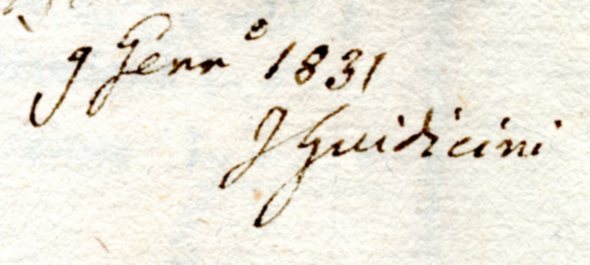 9 Genn° 1831
G Guidicini